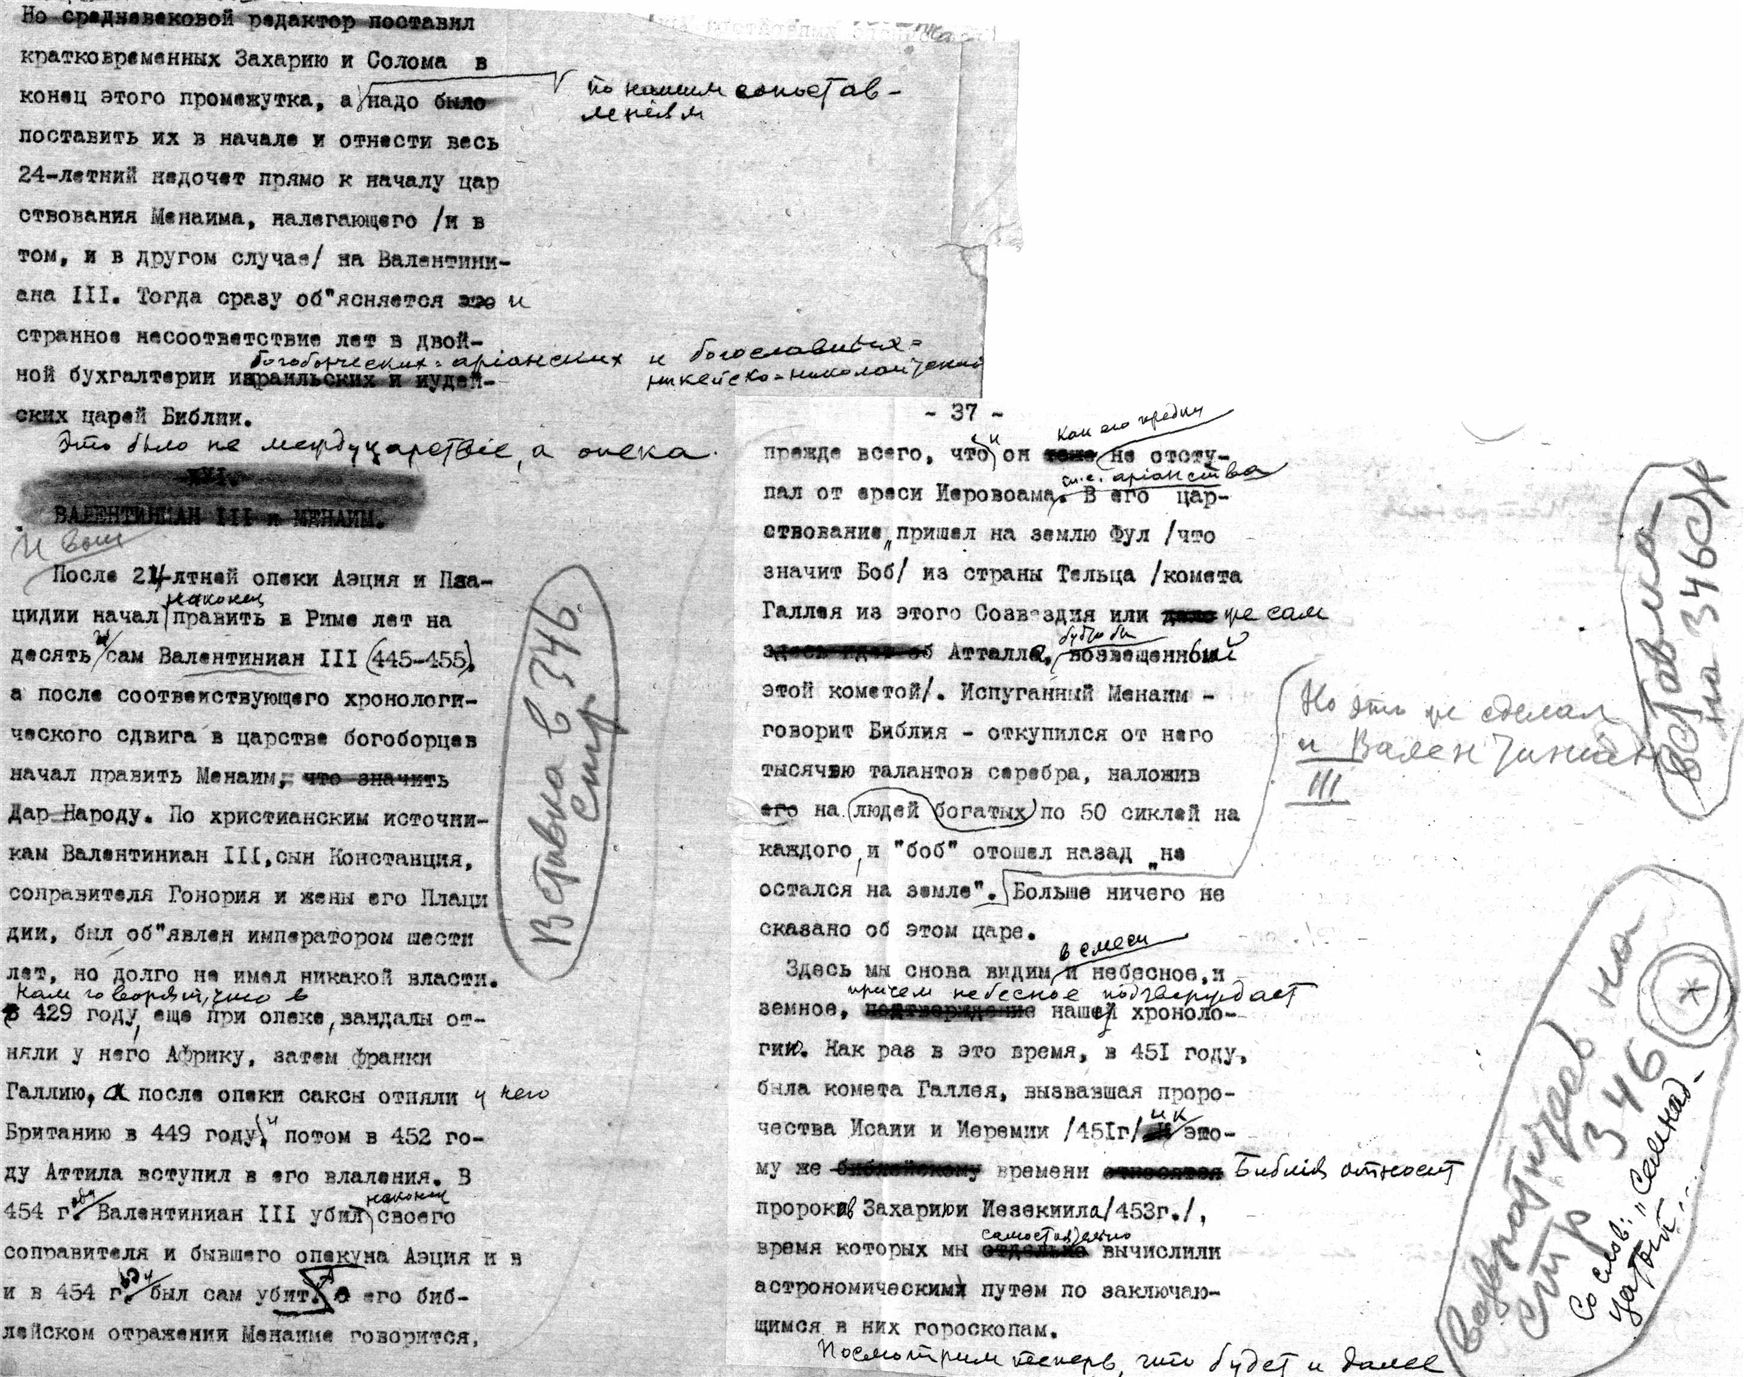 Но средневековой редактор поставил
кратковременных Захарию и Солома в
конец этого промежутка, а надо было
по нашим сопостав-
лениям
поставить их в начале и отнести весь
24-летний недочет прямо к началу цар
ствования Менаима, налегающего /и в
том, и в другом случае/ на Валентини-
ана III. Тогда сразу об"ясняется это и
странное несоответствие лет в двой-
богоборческих-аріанских и богославных-
ной бухгалтерии израильских и иудей-
никейско-николаитских
ских царей Библии.
Это было не междуцарствіе, а опека.
XVI.
ВАЛЕНТИНИАН III и МЕНАИМ.
И вот
После 24-лтней опеки Аэция и Пла-
наконец
цидии начал править в Риме лет на
десять и сам Валентиниан III (445-455),
а после соответствующего хронологи-
ческого сдвига в царстве богоборцев
начал править Менаим, что значить
Дар Народу. По христианским источни-
кам Валентиниан III, сын Констанция,
соправителя Гонория и жены его Плаци
дии, был об"явлен императором шести
лет, но долго не имел никакой власти.
Нам говорят, что в
в 429 году, еще при опеке, вандалы от-
няли у него Африку, затем франки
Галлию, а после опеки саксы отняли у него
Британию в 449 году, и потом в 452 го-
ду Аттила вступил в его владения. В
наконец
454 г. Валентиниан III убил своего
соправителя и бывшего опекуна Аэция и в
и в 454 г. был сам убит. О его биб-
лейском отражении Менаиме говорится,
Вставка в 346.
стр
- 37 -
как его предки
прежде всего, что и он тоже не отсту-
т.е. аріанства
пал от ереси Иеровоама. В его цар-
ствование „пришел на землю Фул /что
значит Боб/ из страны Тельца /комета
Галлея из этого Созвездия или даже же сам
будто бы
здесь идет об Атталле, возвещенный
этой кометой/. Испуганный Менаим -
говорит Библия - откупился от него
тысячью талантов серебра, наложив
его на людей богатых по 50 сиклей на
каждого, и "боб" отошел назад „не
остался на земле". Больше ничего не
сказано об этом царе.
Но это же сделал
и Валентиниан
III
в смеси
Здесь мы снова видим и небесное, и
причем небесное подтверждает
земное, подтверждение нашей хроноло-
гию. Как раз в это время, в 451 году,
была комета Галлея, вызвавшая проро-
чества Исаии и Иеремии /451г/ и к это-
му же библейскому времени относятся Библія относит
пророков Захарию и Иезекиила /453г./,
самостоятельно
время которых мы отдельно вычислили
астрономическим путем по заключаю-
щимся в них гороскопам.
Посмотрим теперь, что будет и далее
Вставка
на 346 стр
Возвратитесь на
стр 346
Со слов: